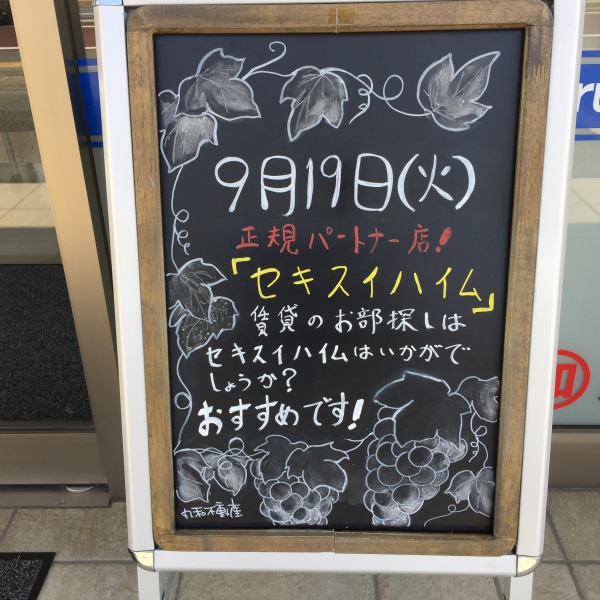 9月19日(火)
正規パートナー店!
「セキスイハイム」
賃貸のお部探しは
セキスイハイムはいかがで
しょうか?
おすすめです!
丸和不動産